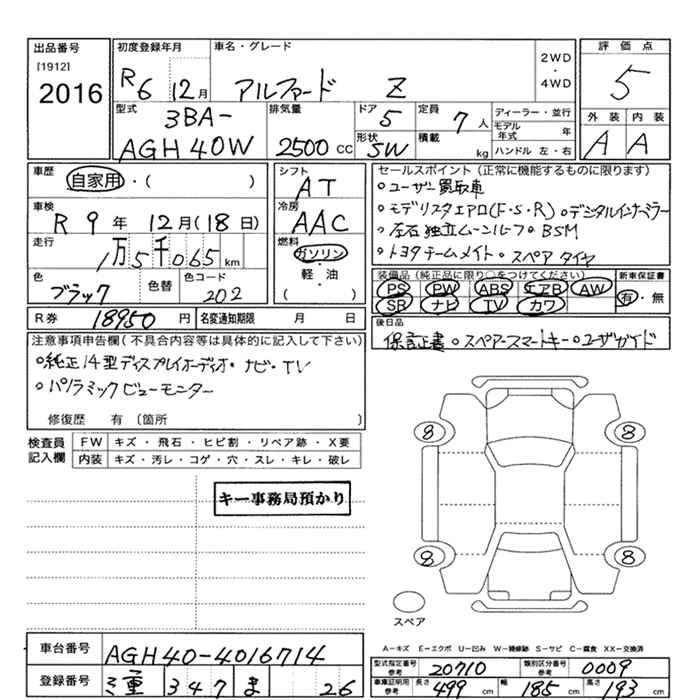 出品番号
[1912]
2016
初度登録年月
R6 12月
車名・グレード
アルファード Z
2WD
・
4WD
評価点
5
外装 内装
A A
型式
3BA-
AGH40W
排気量
2500 CC
ドア
5
形状
SW
定員
7人
積載
kg
ディーラー・並行
モデル年式 年
ハンドル 左・右
車歴
自家用・( )
車検
R9年 12月(18日)
走行
1万5千065 km
色
ブラック
色替
色コード
202
シフト
AT
冷房
AAC
燃料
ガソリン
・
軽・油
( )
セールスポイント(正常に機能するものに限ります)
○ユーザー買取車
○モデリスタエアロ(F・S・R) ○デジタルインナーミラー
○左右独立ムーンルーフ ○BSM
○トヨタチームメイト ○スペアタイヤ
装備品(純正品に限り○をつけてください)
PS PW ABS エアB AW
SR ナビ TV カワ
新車保証書
有・無
R券 18950円
名変通知期限 月 日
後日品
保証書 ○スペアースマートキー ○ユーザーガイド
注意事項申告欄(不具合内容等は具体的に記入して下さい)
○純正14型ディスプレイオーディオ・ナビ・TV
○パノラミックビューモニター
修復歴 有〔箇所 〕
検査員記入欄
FW キズ・飛石・ヒビ割・リペア跡・X要
内装 キズ・汚レ・コゲ・穴・スレ・キレ・破レ
キー事務局預かり
8 8
8 8
スペア
A－キズ E－エクボ U－凹み W－補修跡 S－サビ C－腐食 XX－交換済
車台番号
AGH40-4016714
登録番号
三重 347 ま 26
型式指定番号 参考 20710
類別区分番号 参考 0009
車庫証明用 参考 長さ 499 cm 幅 185 cm 高さ 193 cm